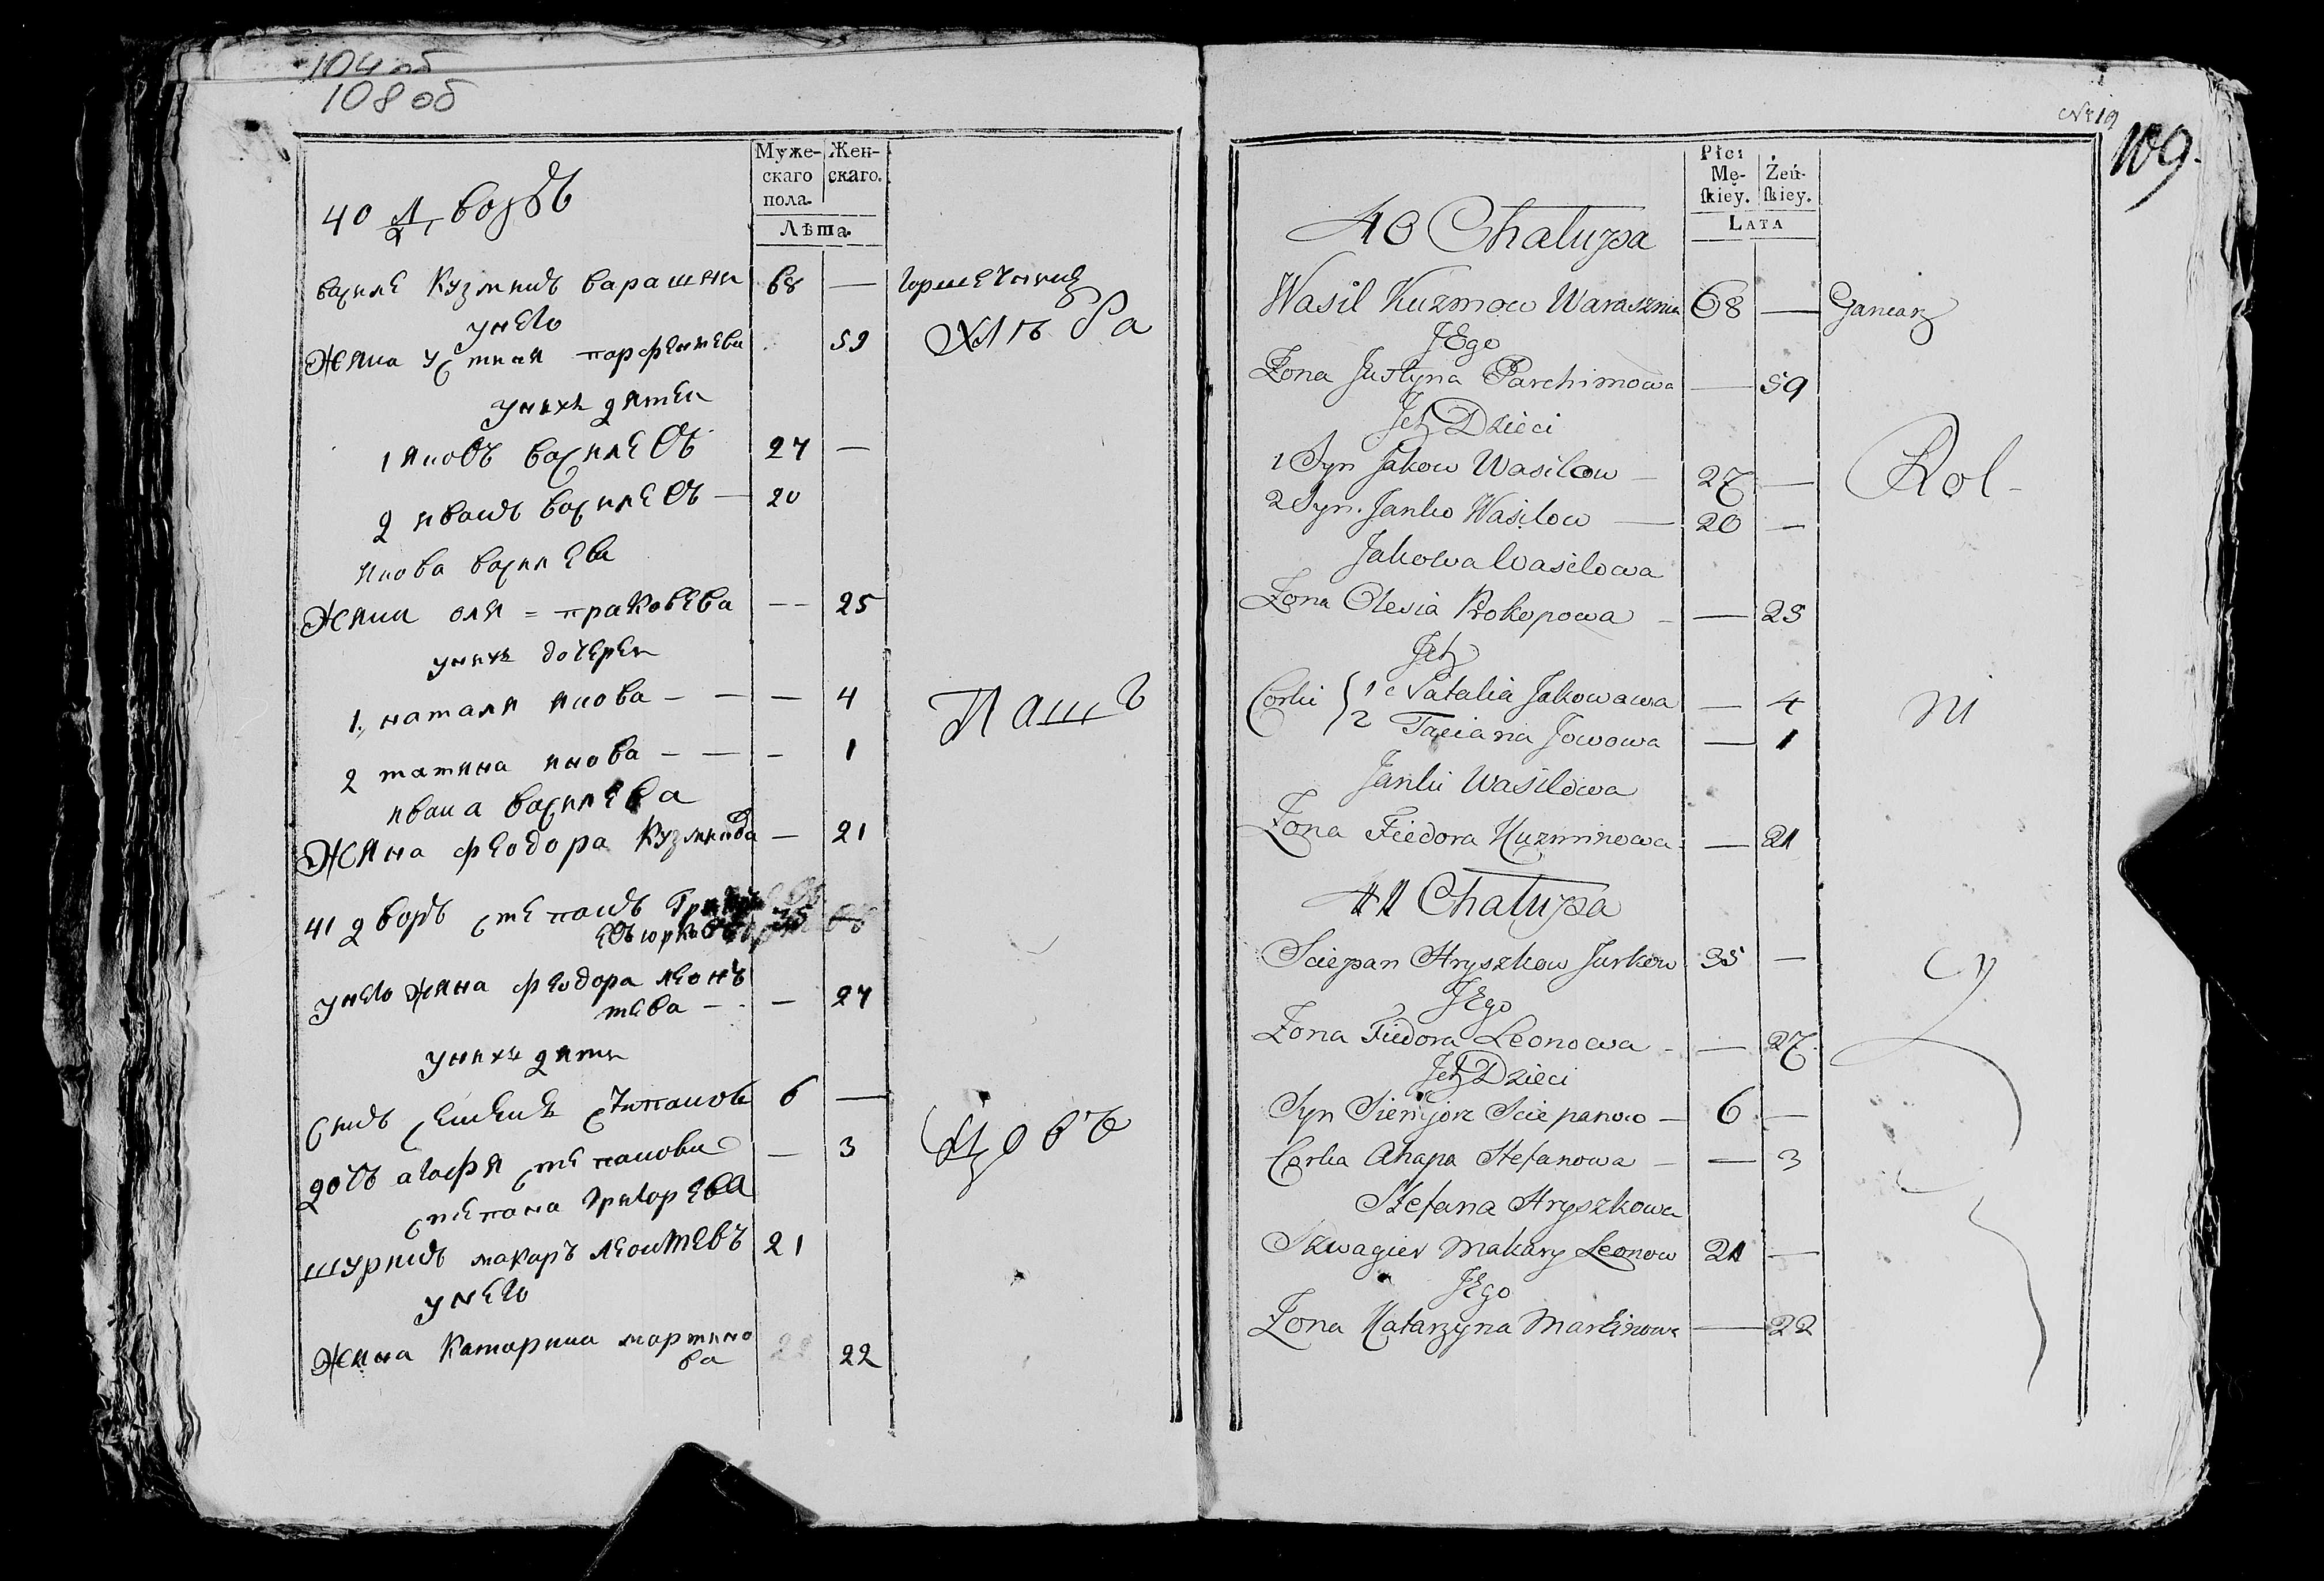 104 об
108 об
Муже-
скаго
пола.
Жен-
скаго.
Лѣта.
40 Дворъ
василе Кузминъ Варашни 68 — горшечникъ
унего
жана устиня парфентева 59
Хлѣба
унихъ дятеи
1 яновъ василевъ 27 —
2 иванъ василевъ — 20
янова василева
жана оля = праковева — — 25
унихъ дочереи
1. наталя янова — — — 4
Пашъ
2 татяна янова — — — 1
ивана василева
жана феодора кузминова — 21
41 дворъ степанъ
евъ юрковъ 35
унего жана феодора леонъ
тева — — 27
унихъ дяти
синъ семенъ степановъ 6 —
дочъ агафя степанова — 3
цовъ
степана григорева
шуринъ макаръ леонтевъ 21
унего
жана катарина мартино
ва 22
№ 19
109.
Płci
Mę-
ſkiey.
Żeń-
ſkiey.
LATA
40 Chałupa
Wasil Kuzmow Warasznia 68 — Gancarz
JEgo
Zona Justyna Parchimowa — 59
Jch Dzieci
1 Syn Jakow Wasilow — 27 —
Rol-
2 Syn. Janko Wasilow — 20 —
Jakowa Wasilowa
Zona Olesia Prokopowa — — 25
Jch
Corki { 1 Natalia Jakowawa — 4
ni
2 Taciana Jowowa — 1
Janki Wasilowa
Zona Fiedora Kuzminowa — 21
41 Chałupa
Sciepan Hryszkow Jurkow 35 —
cy
JEgo
Zona Fiedora Leonowa — — 27
Jch Dzieci
Syn Siemion Sciepanow — 6 —
Corka Ahapa Stefanowa — — 3
Stefana Hryszkowa
Szwagier Makary Leonow 21 —
JEgo
Zona Katarzyna Martinowa — 22